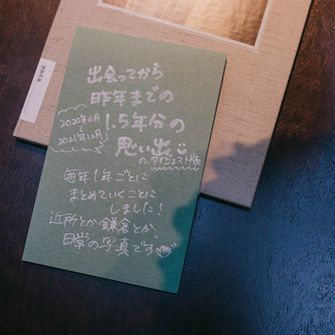 出会ってから
昨年までの
2020年6月
〜
2021年12月
1.5年分の
思い出
の、ダイジェスト版
毎年1年ごとに
まとめていくことに
しました!
近所とか鎌倉とか、
日常の写真です